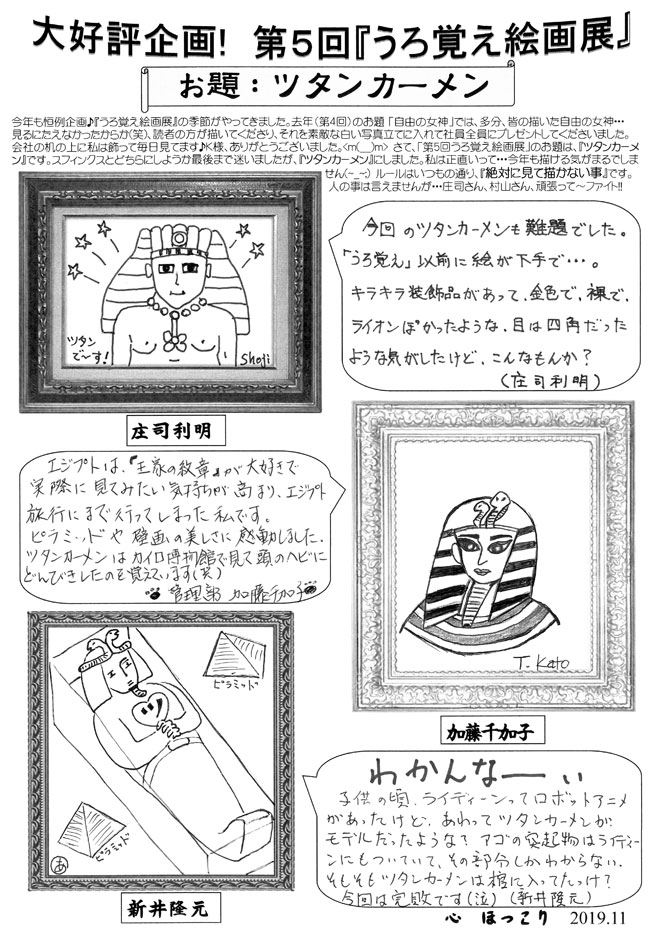 大好評企画! 第5回『うろ覚え絵画展』
お題：ツタンカーメン
今年も恒例企画♪『うろ覚え絵画展』の季節がやってきました。去年(第4回)のお題「自由の女神」では、多分、皆の描いた自由の女神…
見るにたえなかったからか(笑)、読者の方が描いてくださり、それを素敵な白い写真立てに入れて社員全員にプレゼントしてくださいました。
会社の机の上に私は飾って毎日見てます♪K様、ありがとうございました。<m(__)m> さて、『第5回うろ覚え絵画展』のお題は、『ツタンカーメ
ン』です。スフィンクスとどちらにしようか最後まで迷いましたが、『ツタンカーメン』にしました。私は正直いって…今年も描ける気がまるでしま
せん(~_~) ルールはいつもの通り、『絶対に見て描かない事』です。
人の事は言えませんが…庄司さん、村山さん、頑張って～ファイト!!
ツタン
で～す!
Shoji
庄司利明
今回のツタンカーメンも難題でした。
「うろ覚え」以前に絵が下手で…。
キラキラ装飾品があって、金色で、裸で、
ライオンぽかったような、目は四角だった
ような気がしたけど、こんなもんか?
(庄司利明)
エジプトは、『王家の紋章』が大好きで
実際に見てみたい気持ちが高まり、エジプト
旅行にまで行ってしまった私です。
ピラミッドや壁画の美しさに感動しました。
ツタンカーメンはカイロ博物館で見て頭のヘビに
どんびきしたのを覚えてます(笑)
管理部 加藤千加子
T. Kato
加藤千加子
ピラミッド
ピラミッド
あ
新井隆元
わかんなーーい
子供の頃、ライディーンってロボットアニメ
があったけど、あれってツタンカーメンが
モデルだったような? アゴの突起物はライディー
ンにもついていて、その部分しかわからない。
そもそもツタンカーメンは棺に入ってたっけ?
今回は完敗です(泣) (新井隆元)
心 ほっこり 2019.11